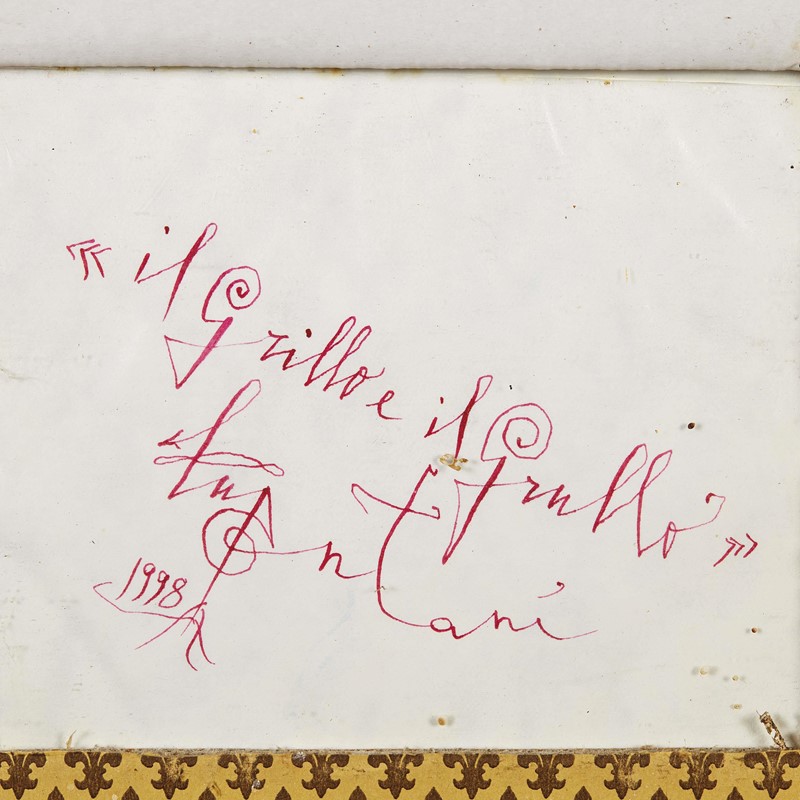 « il Grillo e il Grullo »
Luigi Ontani
1998